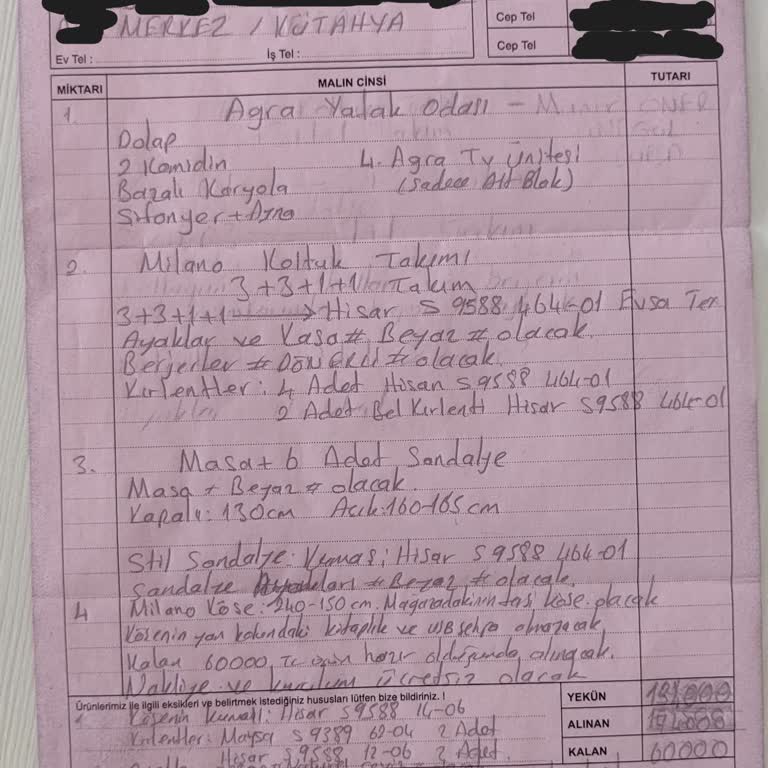 MERKEZ / KÜTAHYA
Cep Tel
Cep Tel
Ev Tel :
İş Tel :
MİKTARI
MALIN CİNSİ
TUTARI
1. Agra Yatak Odası -
Dolap
2 Komidin
4. Agra Tv Ünitesi
Bazalı Karyola
(Sadece Alt Blok)
Şifonyer + Ayna
2. Milano Koltuk Takımı
3+3+1+1 Takım
3+3+1+1 → Hisar S 9588 464-01
Ayaklar ve Kasa # Beyaz # olacak.
Berjerler # DÖNERLİ # olacak.
Kırlentler: 4 Adet Hisar S9588 464-01
2 Adet Bel Kırlenti Hisar S9588 464-01
3. Masa + 6 Adet Sandalye
Masa # Beyaz # olacak.
Kapalı: 130cm Açık: 160-165 cm
Stil Sandalye: Kumaş; Hisar S 9588 464-01
Sandalye Ayakları # Beyaz # olacak.
4 Milano Köşe: 240-150 cm. Mağazadakinin tersi köşe olacak
Köşenin yan kolundaki kitaplık ve USB sehpa olmayacak.
Kalan 60000 TL ürün hazır olduğunda alınacak.
Nakliye ve kurulum ücretsiz olacak
Ürünlerimiz ile ilgili eksikleri ve belirtmek istediğiniz hususları lütfen bize bildiriniz. !
YEKÜN
Köşenin Kumaşı: Hisar S9588 14-06
ALINAN
Kırlentler: Maysa S 9389 62-04 2 Adet
KALAN 60000
Hisar S 9588 12-06 2 Adet.